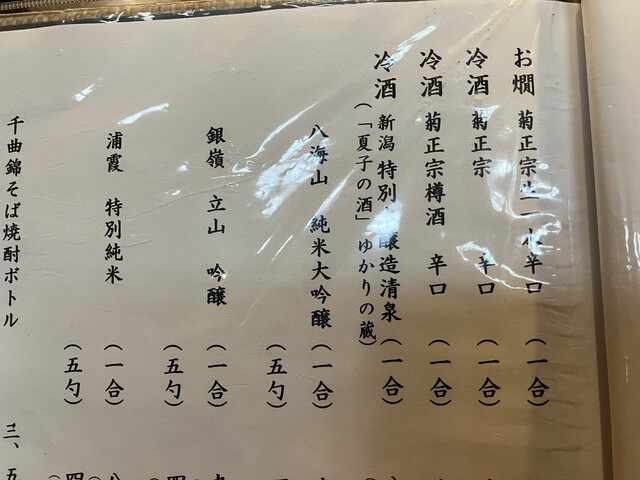 お燗 菊正宗生一本辛口 (一合)
冷酒 菊正宗 辛口 (一合)
冷酒 菊正宗樽酒 辛口 (一合)
冷酒 新潟特別 醸造清泉 (一合)
(「夏子の酒」ゆかりの蔵)
八海山 純米大吟醸 (一合)
(五勺)
銀嶺 立山 吟醸 (一合)
(五勺)
浦霞 特別純米 (一合)
(五勺)
千曲錦そば焼酎ボトル 三、五